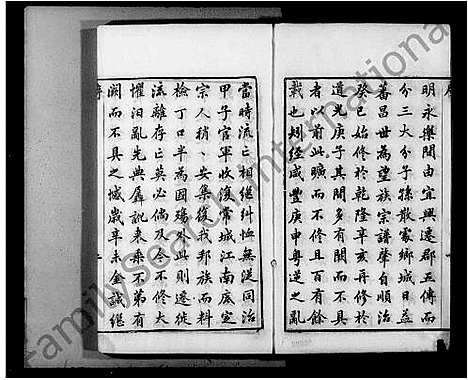 明永樂間由宜興遷郡五傳而
分三大分子孫散處鄉城日益
蕃昌世為望族宗譜肇自順治
癸巳始修於乾隆辛亥再修於
道光庚子其間多有闕而不具
者以前此曠而不修且百有餘
載也矧經咸豐庚申粵逆之亂
當時流亡相繼糾恤無從同治
甲子官軍收復常城江南底定
宗人稍、安集復我邦族而料
檢丁口半為國殤此則遷徙
流離存亡莫必倘及今不修大
懼汩亂先典舛訛來乘不第有
闕而不具之憾歲辛未金誠繼
familysearch international